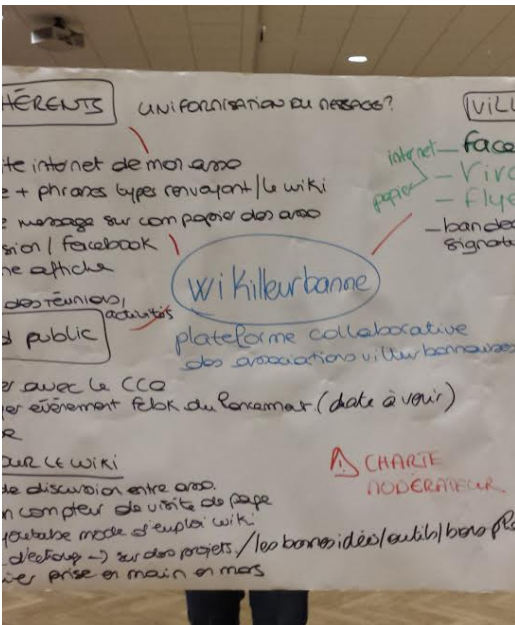 HÉRENTS
UNIFORMISATION DU MESSAGE?
VILL
te internet de mon asso
e + phrases types renvoyant/le wiki
e message sur com papier des asso
sion / facebook
ne affiche
des réunions,
activités
d public
internet — face
papier — Viva
— Flye
— bande
signatu
wikilleurbanne
plateforme collaborative
des associations villeurbannaises
er avec le CCO
er évènement febk du lancemat (date à voir)
OUR LE WIKI
de discussion entre asso.
n compteur de visite de page
youtube mode d'emploi wiki
d'echange -> sur des projets, /les bonnes idées/outils/bons pla
ier prise en main en mars
⚠ CHARTE
MODERATEUR